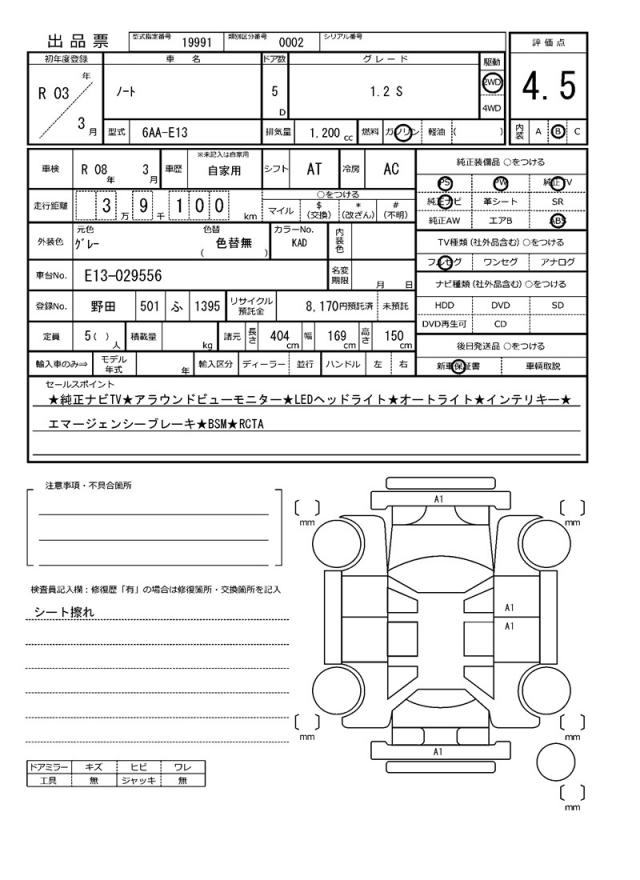 出品票 型式指定番号 19991 類別区分番号 0002 シリアル番号
評価点
4.5
初年度登録 車名 ドア数 グレード 駆動
R 03 年 3 月 ノート 5 D 1.2 S 2WD 4WD
型式 6AA-E13 排気量 1.200 cc 燃料 ガソリン 軽油 ( ) 内装 A B C
車検 R 08 年 3 月 車歴 ※未記入は自家用 自家用 シフト AT 冷房 AC
純正装備品 ○をつける
PS PW 純正TV
純正ナビ 革シート SR
純正AW エアB ABS
走行距離 3 万 9 千 1 0 0 km
○をつける
マイル $ (交換) * (改ざん) # (不明)
外装色 元色 グレー 色替 色替無 ( ) カラーNo. KAD 内装色
TV種類 (社外品含む) ○をつける
フルセグ ワンセグ アナログ
車台No. E13-029556 名変期限 月 日
ナビ種類 (社外品含む) ○をつける
HDD DVD SD
DVD再生可 CD
登録No. 野田 501 ふ 1395 リサイクル預託金 8,170円預託済 未預託
定員 5( ) 人 積載量 kg 諸元 長さ 404 cm 幅 169 cm 高さ 150 cm
後日発送品 ○をつける
新車保証書 車輌取説
輸入車のみ⇒ モデル年式 年 輸入区分 ディーラー 並行 ハンドル 左 右
セールスポイント
★純正ナビTV★アラウンドビューモニター★LEDヘッドライト★オートライト★インテリキー★
エマージェンシーブレーキ★BSM★RCTA
注意事項・不具合箇所
検査員記入欄：修復歴「有」の場合は修復箇所・交換箇所を記入
シート擦れ
ドアミラー キズ ヒビ ワレ
工具 無 ジャッキ 無
A1
mm
mm
A1
A1
mm
mm
A1
mm